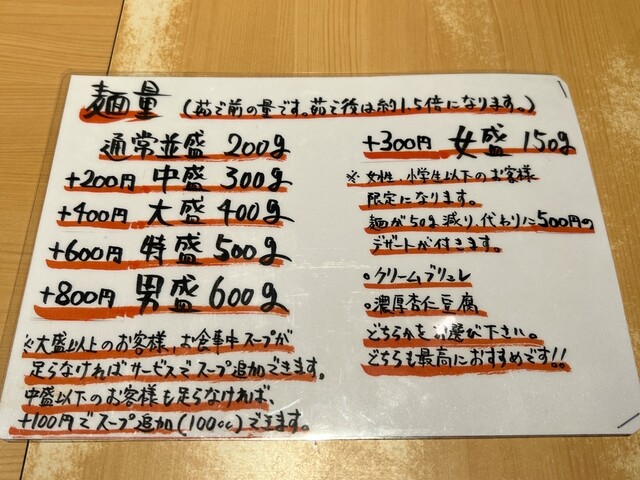 麺量 (茹で前の量です。茹で後は約1.5倍になります。)
通常並盛 200g
+200円 中盛 300g
+400円 大盛 400g
+600円 特盛 500g
+800円 男盛 600g
※大盛以上のお客様、お食事中スープが
足らなければサービスでスープ追加できます。
中盛以下のお客様も足らなければ、
+100円でスープ追加(100cc)できます。
+300円 女盛 150g
※女性、小学生以下のお客様
限定になります。
麺が50g減り、代わりに500円の
デザートが付きます。
○クリームブリュレ
○濃厚杏仁豆腐
どちらかをお選び下さい。
どちらも最高におすすめです!!